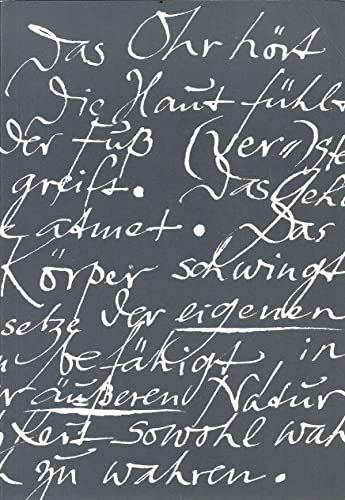 Das Ohr hört
Die Haut fühlt
der Fuß (ver")ste
greift. Das Geh
atmet. Das
Körper schwingt
setze der eigenen
befähigt in
äußeren Natur
keit sowohl wah
zu wahren.